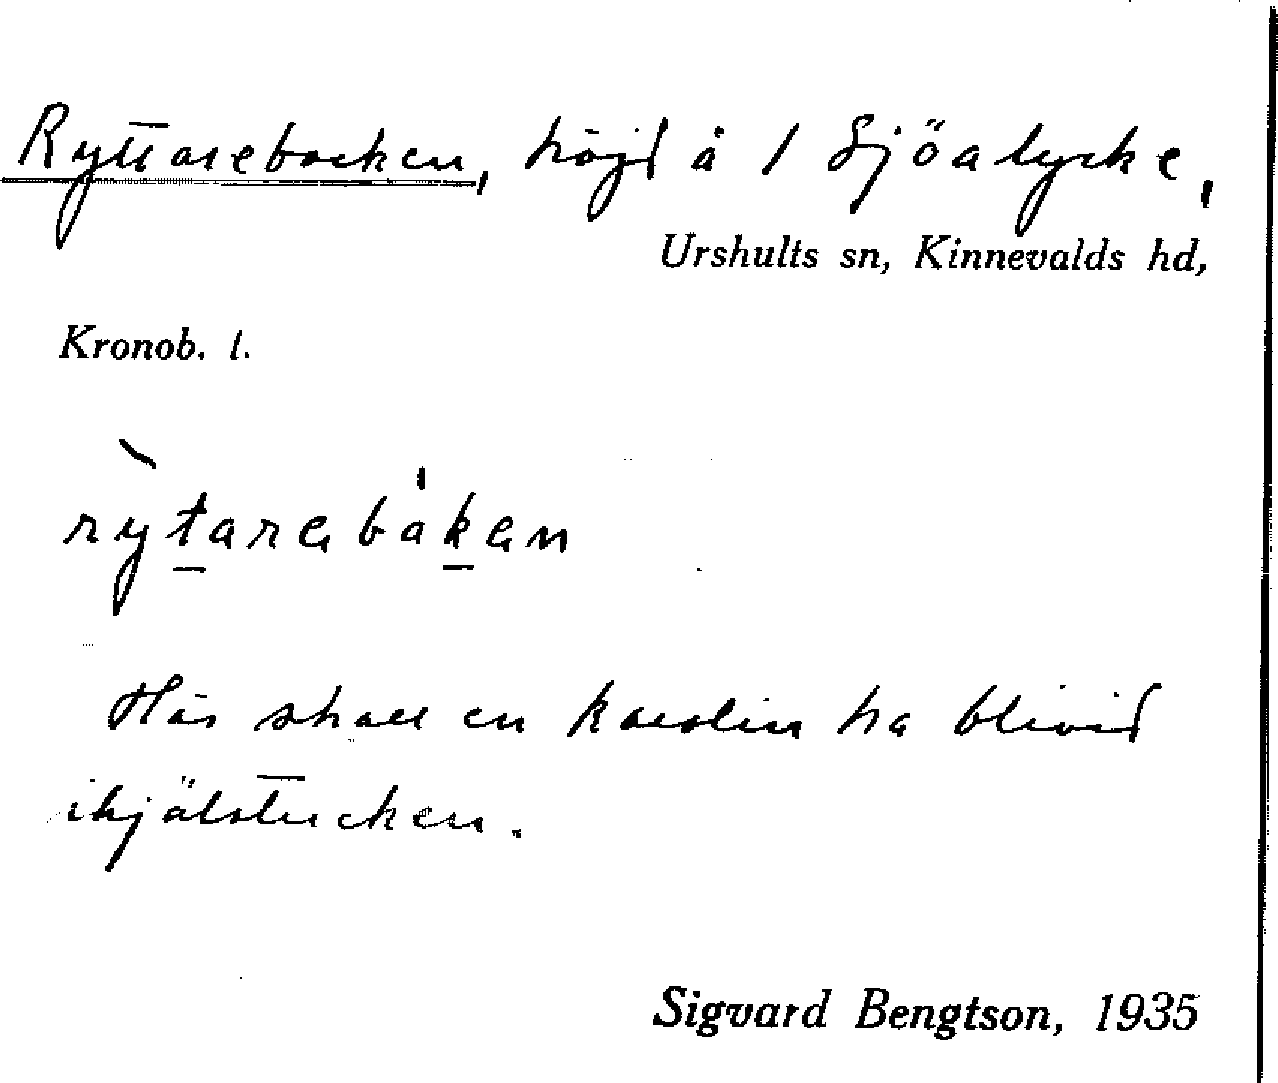 Ryttarebacken, höjd å 1 Sjöalycke,
Urshults sn, Kinnevalds hd,
Kronob. l.
rỳtarebáken
Här skall en karolin ha blivid
ihjälstucken.
Sigvard Bengtson, 1935